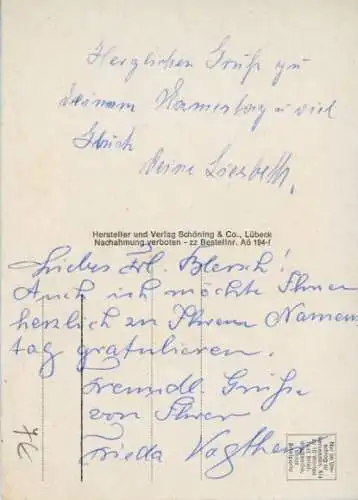 Herzlichen Gruß zu
deinem Namenstag u viel
Glück
Deine Liesbeth.
Hersteller und Verlag Schöning & Co., Lübeck
Nachahmung verboten - zz Bestellnr. Aö 194-f
Liebes Frl. Blersch!
Auch ich möchte Ihnen
herzlich zu Ihrem Namens
tag gratulieren.
Freundl. Grüße
von Ihrer
Frieda